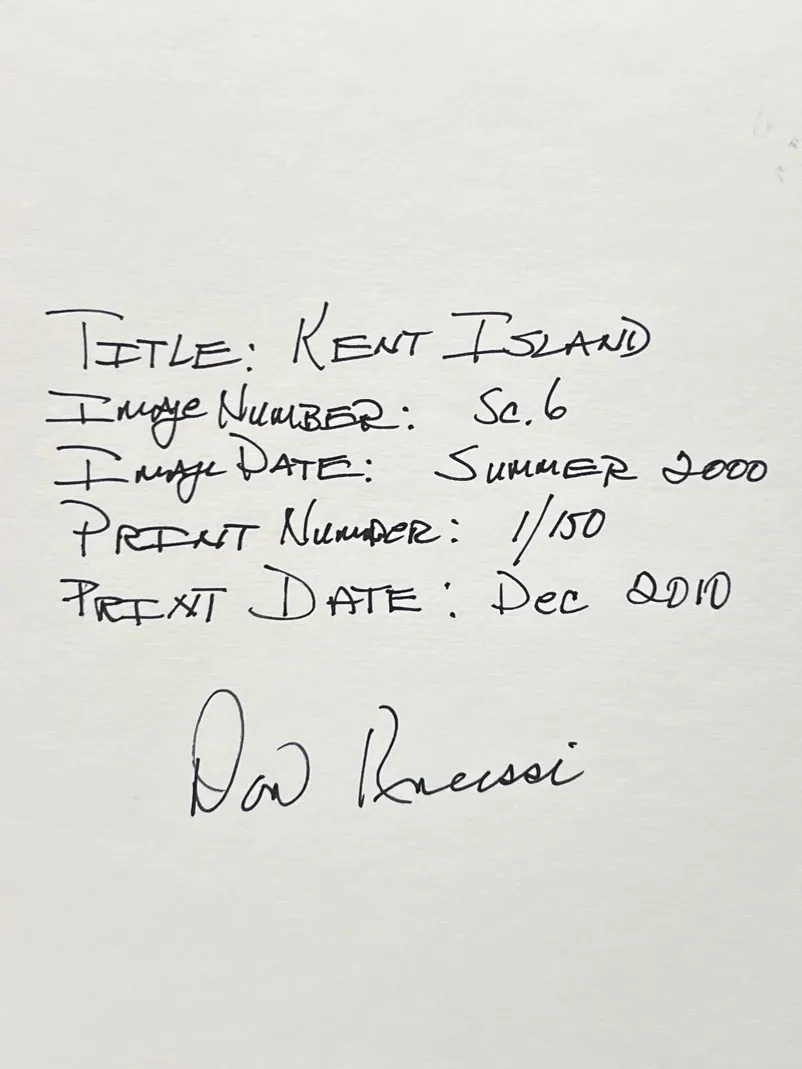 TITLE: KENT ISLAND
Image NUMBER: Sc. 6
Image DATE: SUMMER 2000
PRINT NUMBER: 1/150
PRINT DATE: Dec 2010
Don